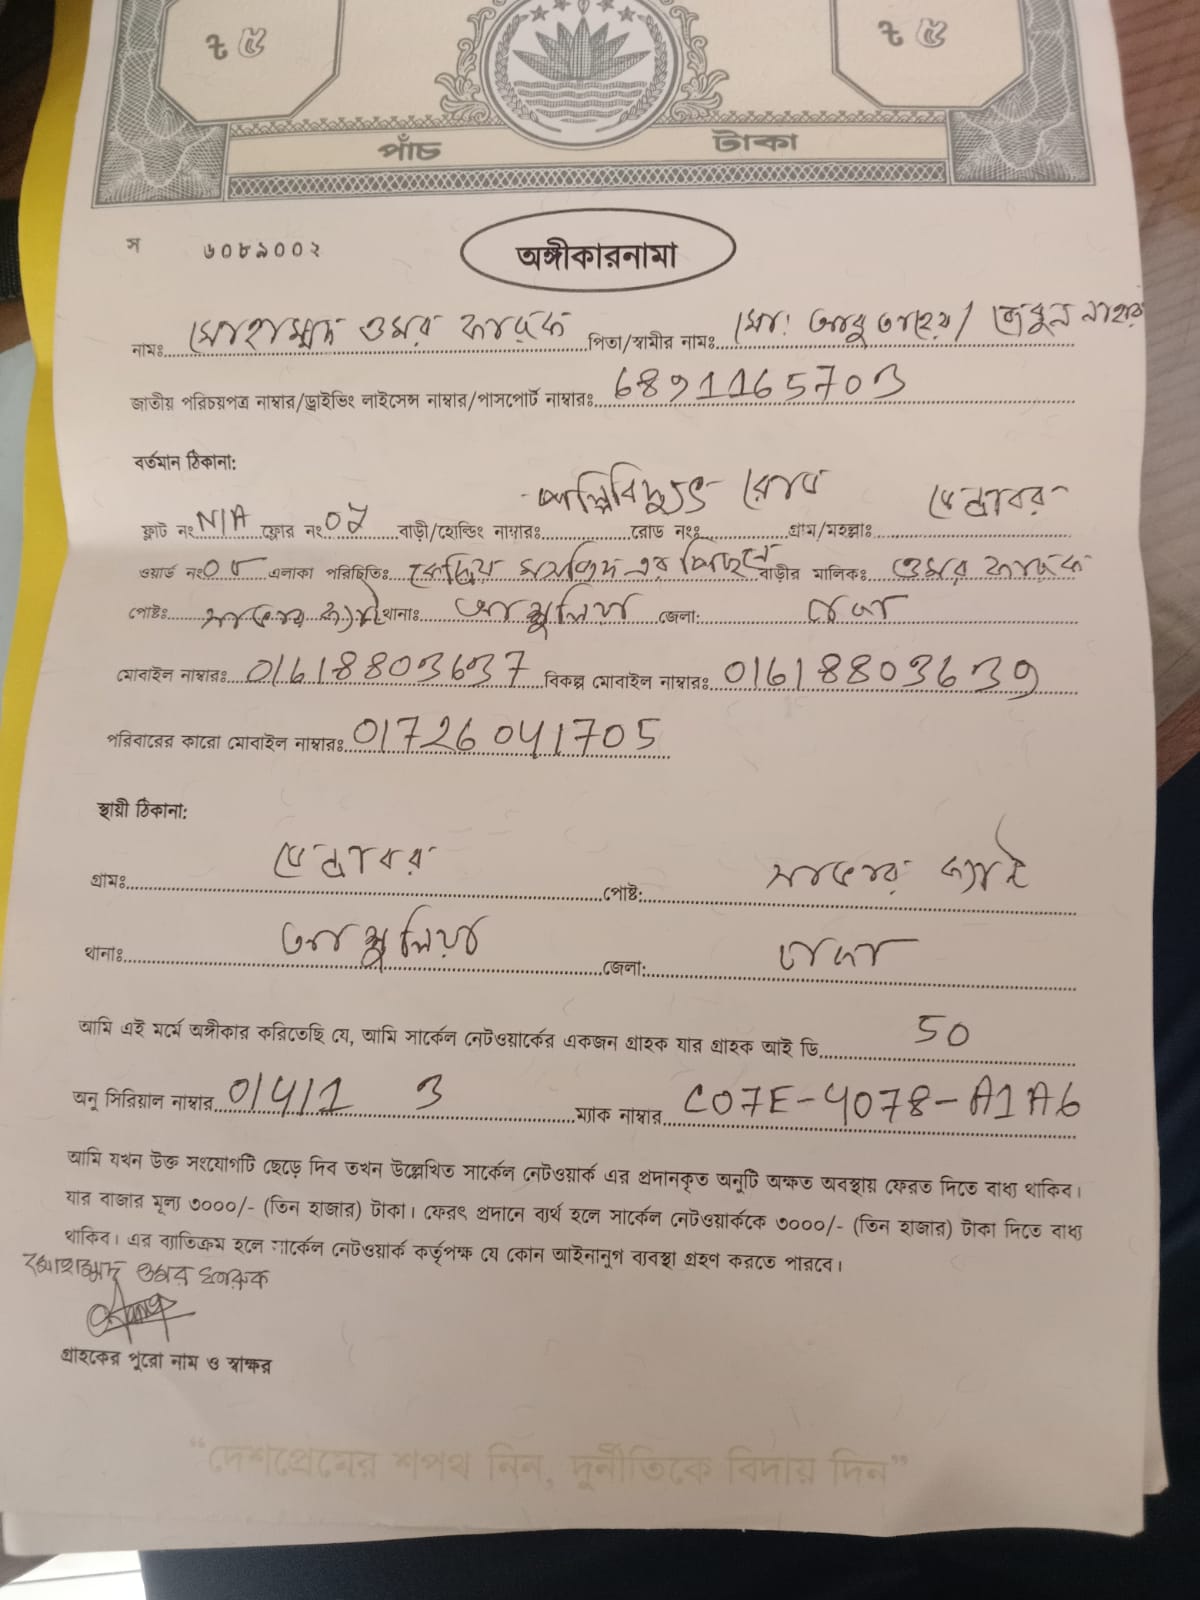 ৳ ৫ ৳ ৫
পাঁচ টাকা
স ৬০৮৯০০২
অঙ্গীকারনামা
নামঃ মোহাম্মদ ওমর ফারুক পিতা/স্বামীর নামঃ মো: আবু তাহের/ জেবুন নাহার
জাতীয় পরিচয়পত্র নাম্বার/ড্রাইভিং লাইসেন্স নাম্বার/পাসপোর্ট নাম্বারঃ 6891165703
বর্তমান ঠিকানা:
ফ্লাট নং N/A ফ্লোর নং 02 বাড়ী/হোল্ডিং নাম্বারঃ পল্লিবিদ্যুৎ রোড রোড নংঃ গ্রাম/মহল্লাঃ ডেন্ডাবর
ওয়ার্ড নং 08 এলাকা পরিচিতিঃ কেন্দ্রিয় মসজিদ এর পিছনে বাড়ীর মালিকঃ ওমর ফারুক
পোষ্টঃ সাভার ক্যান্ট থানাঃ আশুলিয়া জেলা: ঢাকা
মোবাইল নাম্বারঃ 01618803637 বিকল্প মোবাইল নাম্বারঃ 01618803639
পরিবারের কারো মোবাইল নাম্বারঃ 01726041705
স্থায়ী ঠিকানা:
গ্রামঃ ডেন্ডাবর পোষ্ট: সাভার ক্যান্ট
থানাঃ আশুলিয়া জেলা: ঢাকা
আমি এই মর্মে অঙ্গীকার করিতেছি যে, আমি সার্কেল নেটওয়ার্কের একজন গ্রাহক যার গ্রাহক আই ডি 50
অনু সিরিয়াল নাম্বার 01412 3 ম্যাক নাম্বার C07E-4078-A1A6
আমি যখন উক্ত সংযোগটি ছেড়ে দিব তখন উল্লেখিত সার্কেল নেটওয়ার্ক এর প্রদানকৃত অনুটি অক্ষত অবস্থায় ফেরত দিতে বাধ্য থাকিব।
যার বাজার মূল্য ৩০০০/- (তিন হাজার) টাকা। ফেরৎ প্রদানে ব্যর্থ হলে সার্কেল নেটওয়ার্ককে ৩০০০/- (তিন হাজার) টাকা দিতে বাধ্য
থাকিব। এর ব্যাতিক্রম হলে সার্কেল নেটওয়ার্ক কর্তৃপক্ষ যে কোন আইনানুগ ব্যবস্থা গ্রহণ করতে পারবে।
মোহাম্মদ ওমর ফারুক
গ্রাহকের পুরো নাম ও স্বাক্ষর
“দেশপ্রেমের শপথ নিন, দুর্নীতিকে বিদায় দিন”